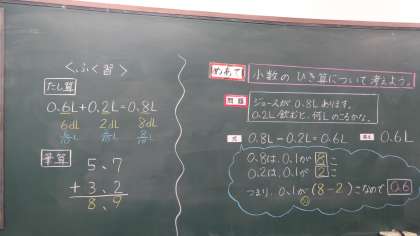 <ふく習>
たし算
0.6L+0.2L=0.8L
6dL 2dL 8dL
筆算
5.7
+3.2
8.9
めあて
小数のひき算について考えよう。
問題
ジュースが 0.8Lあります。
0.2L飲むと、何Lのこるかな。
式
0.8L-0.2L=0.6L
0.6L
0.8は、0.1が8こ
0.2は、0.1が2こ
つまり、0.1が(8-2)こなので0.6